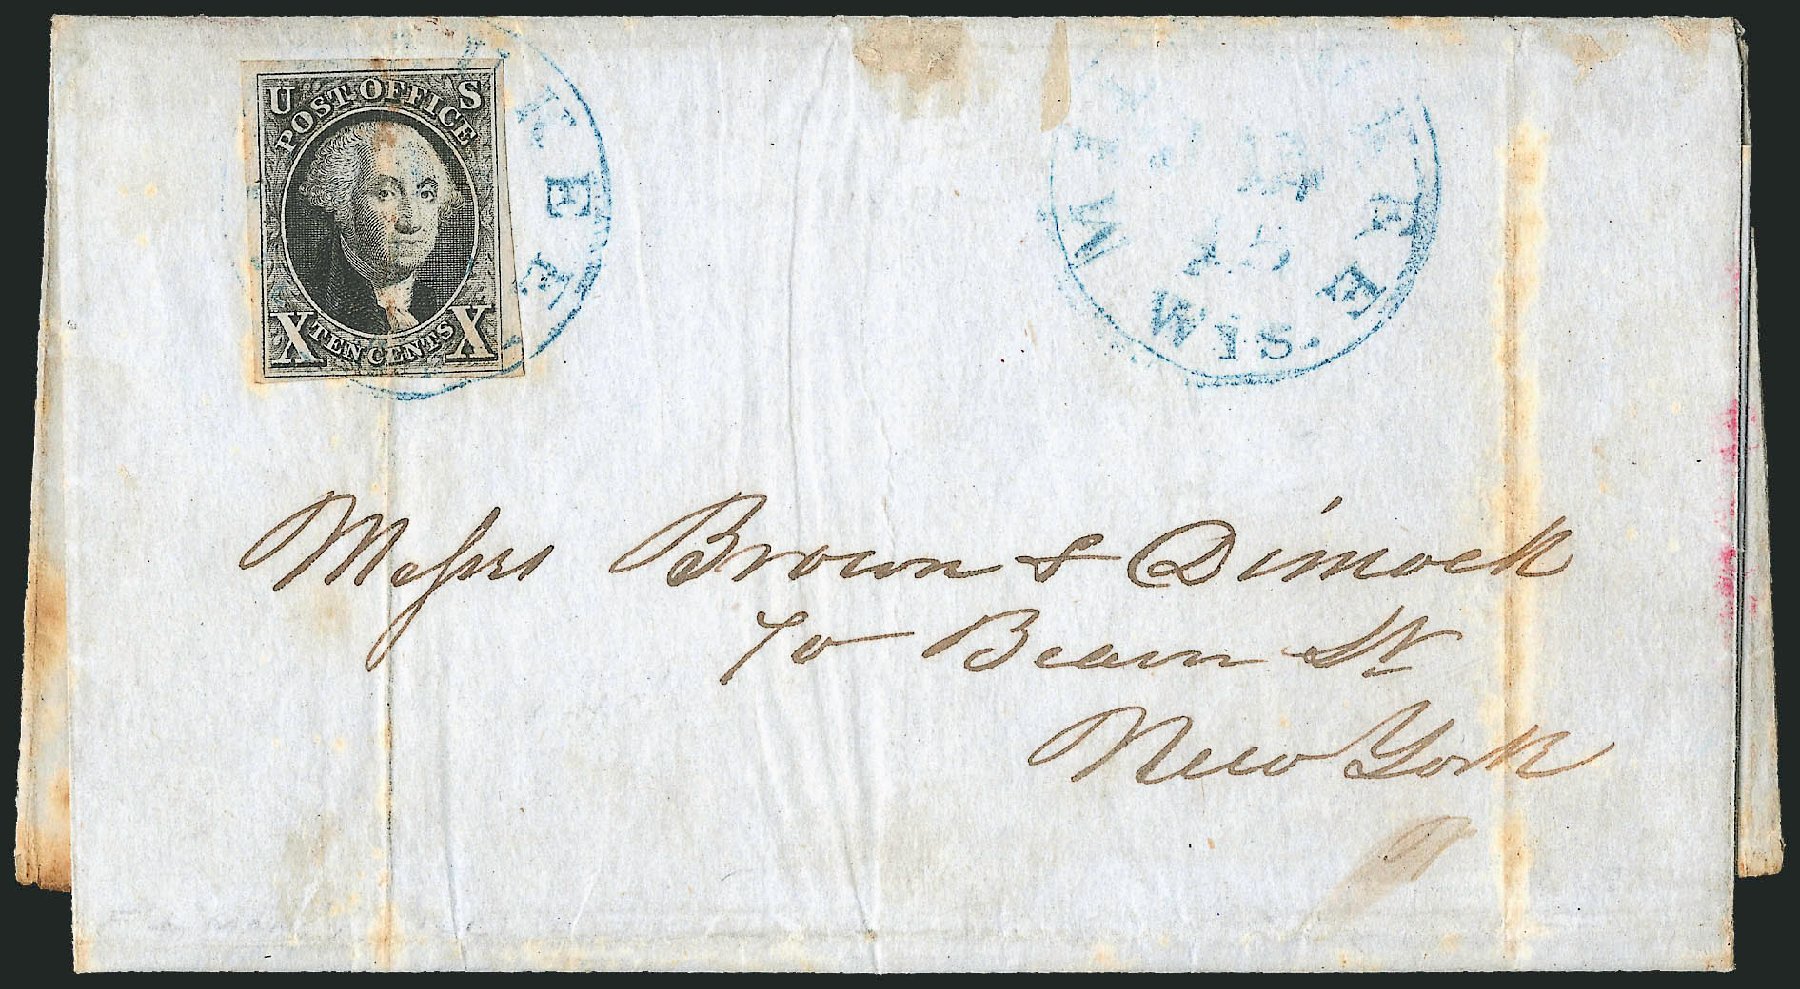 U S
POST OFFICE
X TEN CENTS X
UKEE
MIL KEE
WIS.
Messrs Brown & Dimock
70 Beaver St
New York